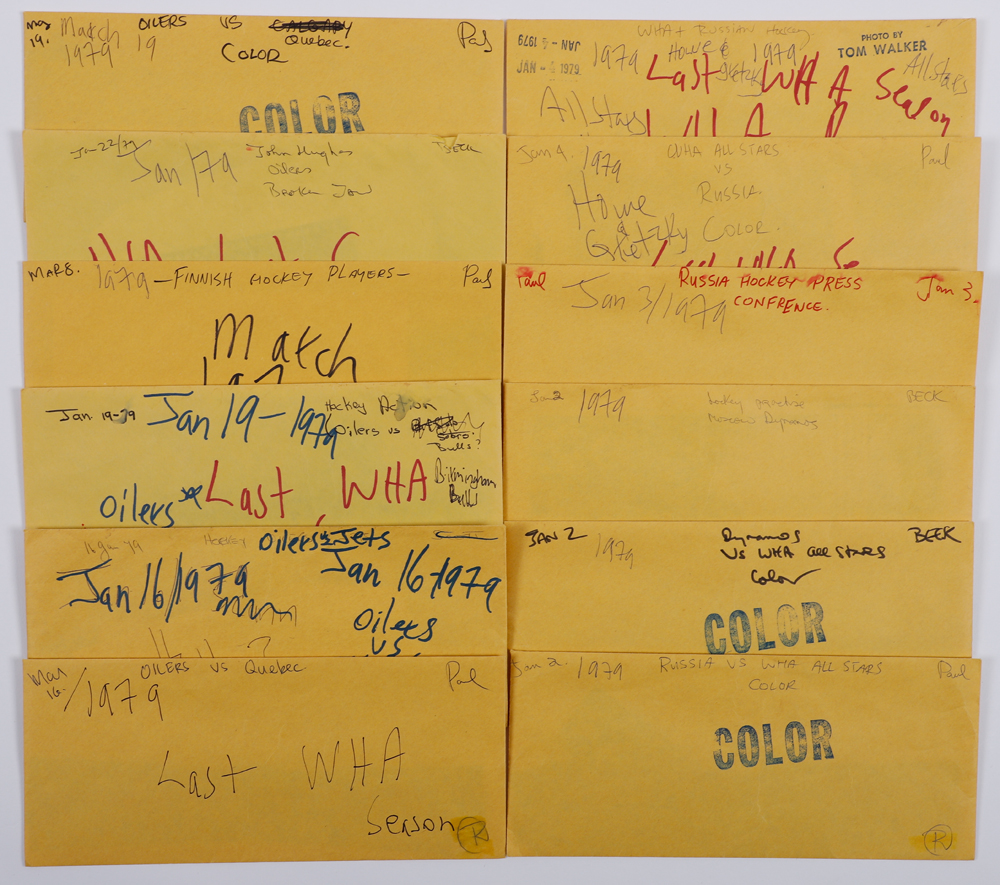 Mar 19.
March 19
1979
OILERS VS CALGARY
Quebec.
COLOR
Paul
COLOR
Jan 22/79
Jan/79
John Hughes
Oilers
Broken Jaw
BECK
WHA Last S
MAR 8.
1979 – FINNISH HOCKEY PLAYERS –
Paul
March
197
Jan 19-79
Jan 19-1979
Hockey Action
Oilers vs
Bulls?
Oilers vs
Last WHA
Birmingham
Bulls
16 Jan 79
HOCKEY
Oilers vs Jets
Jan 16/1979
Jan 16/1979
Oilers
VS.
Mar
16.
/1979
OILERS VS Quebec
Paul
Last WHA
Season
R
WHA + RUSSIAN Hockey
JAN - 5 1979
JAN - 5 1979
1979
Howe &
Gretzky
1979
PHOTO BY
TOM WALKER
All Stars
Last WHA Season
All Stars
WHA
Jan 4.
1979
WHA ALL STARS
VS
RUSSIA.
Paul
Howe
&
Gretzky
COLOR.
Last WHA Se
Paul
Jan 3/1979
RUSSIA HOCKEY PRESS
CONFRENCE.
Jan 3.
Jan 2
1979
hockey practise
Moscow Dynamos
BECK
JAN 2
1979
Dynamos
VS WHA All STARS
Color
BECK
COLOR
Jan 2.
1979
RUSSIA VS WHA ALL STARS
COLOR
Paul
COLOR
R